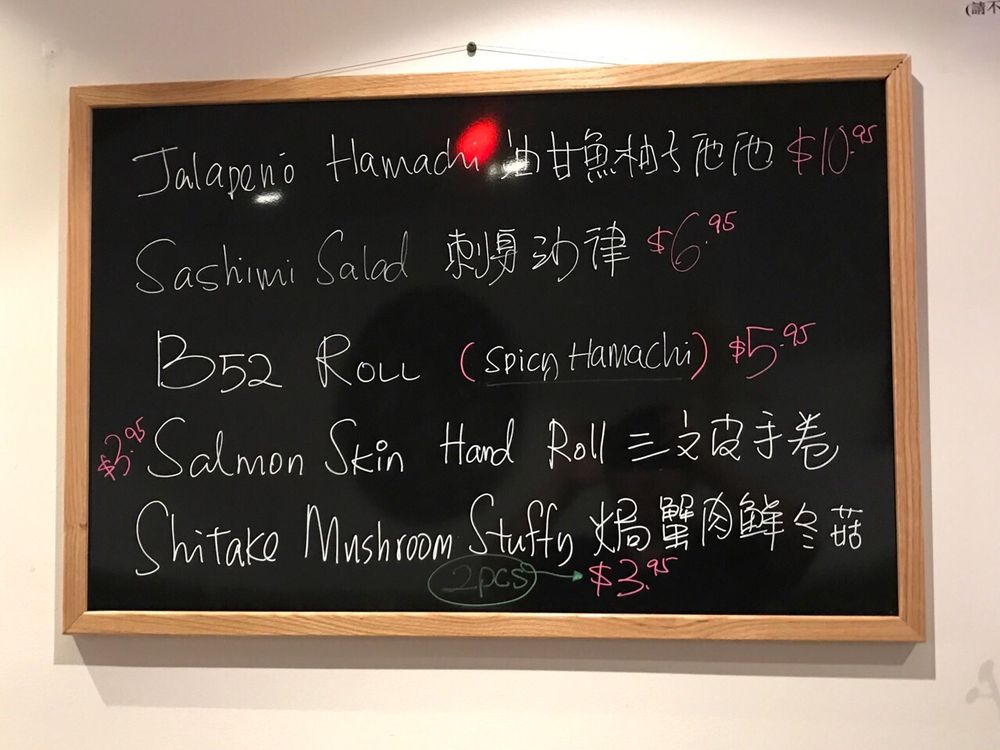 (請不
Jalapeño Hamachi 油甘魚柚子池池 $10.95
Sashimi Salad 刺身沙律 $6.95
B52 Roll (Spicy Hamachi) $5.95
$3.95 Salmon Skin Hand Roll 三文皮手卷
Shitake Mushroom Stuffy 焗蟹肉鮮冬菇
2pcs → $3.95